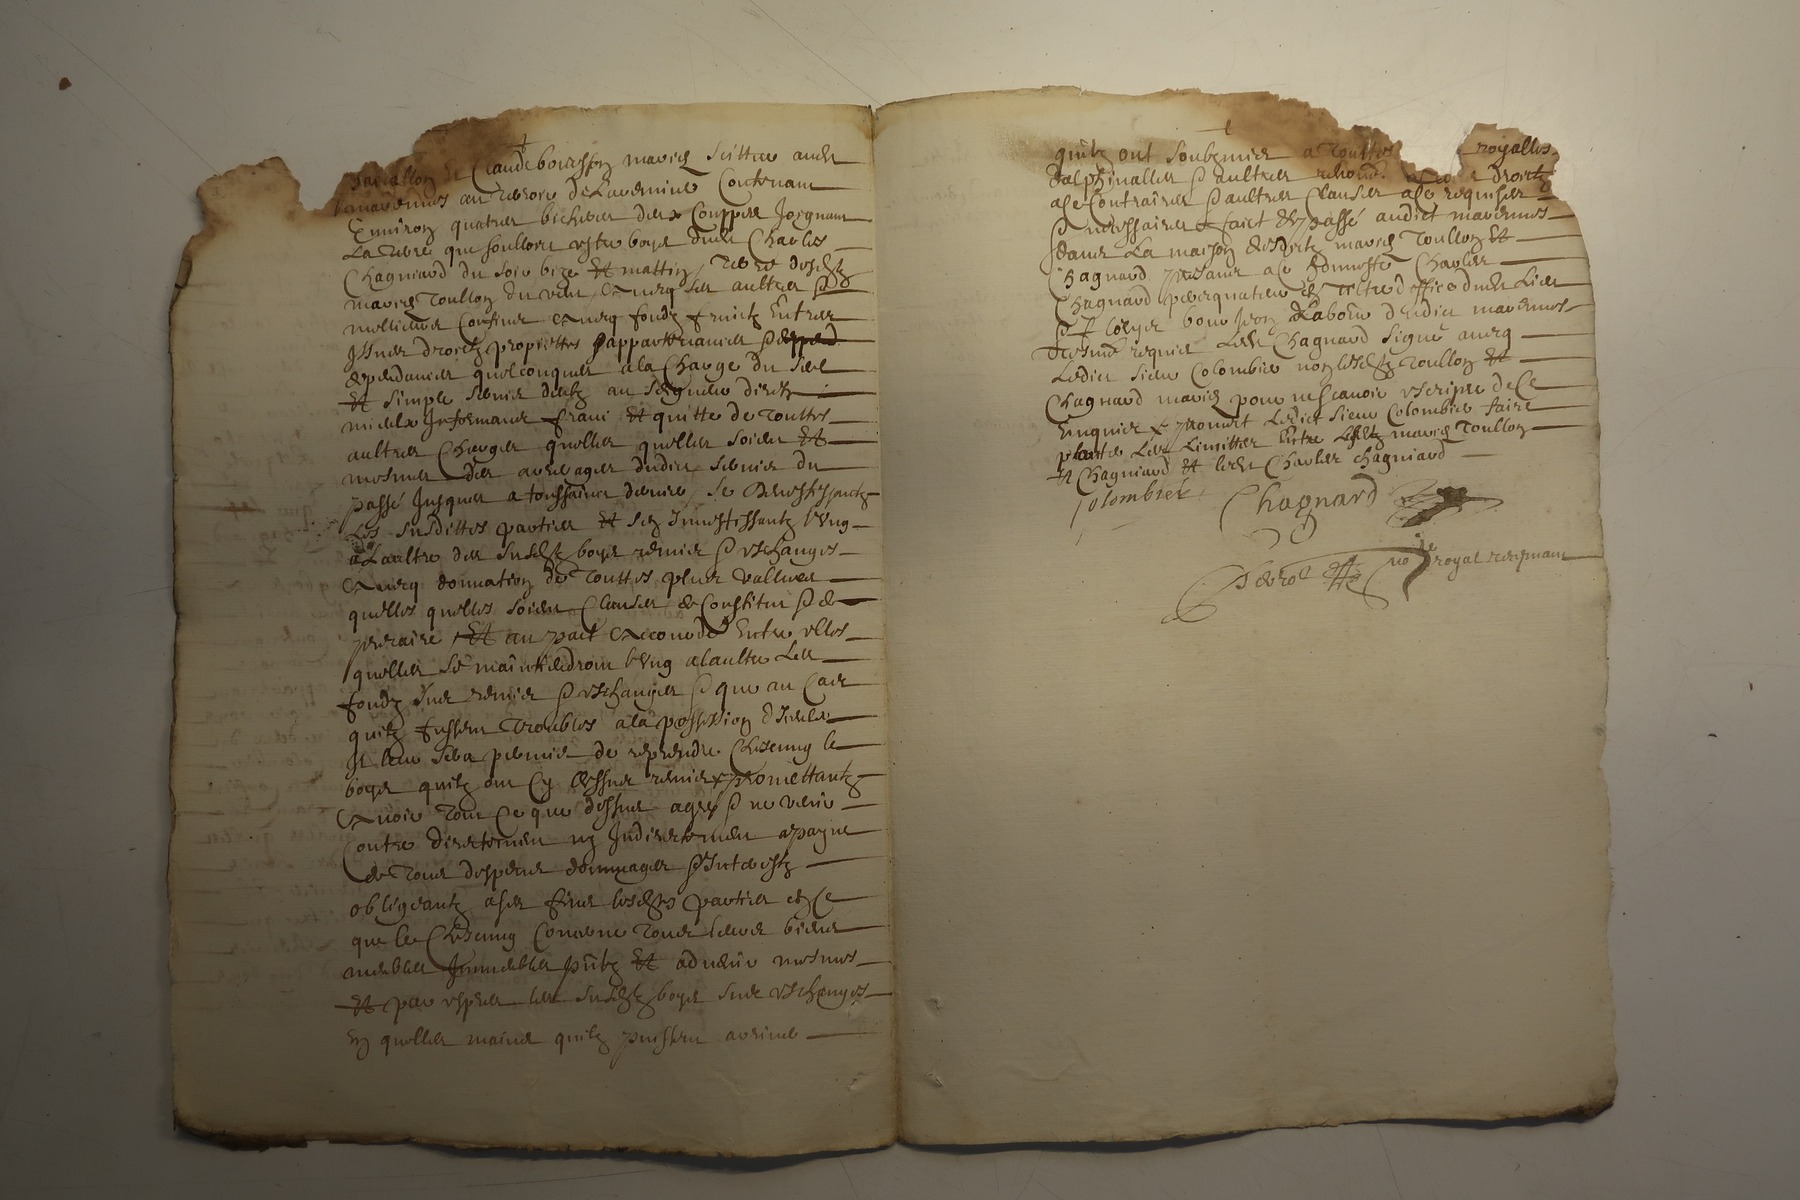 de Claude bouasson mariez scittue audit
mavernos au terroir de Lavernine Contenant
Environ quatre bicherer deux Couppes Joignant
La terre que souloit estre boys dudit Charles
Chagniard du soir bize Et mattin, terre desditz
mariez Toullon du vent, avecq ses aultres &
meilleurs Confins avecq fondz fruictz Entrees
Issues droictz proprietes appartenances &
deppendances quelconques a la Charge du
Et simple servis deubtz au seigneur direct
franc Et quitte de touttes
aultres Charges quelles quelles soient Et
mesmes des arrerages dudict servis du
passé Jusques a toussainctz dernier, se Devestissantz
Les susdittes parties Et sen Investissantz l'Ung
a Laultre des susditz boys remis & eschanges
avecq donnation de touttes plus vallues
quelles quelles soient Clauses de Constitut & de
precaire Et au pact accordé Entre elles
quelles se maintiedront l'Ung a laultre Les
fondz sus remis & eschanges & que au Cas
quilz fussent troubles a la possession dIceulx
Il leur sera permis de reprendre Chescung le
boys quilz ont Cy dessus remis promettantz
avoir tout Ce que dessus agreé & ne venir
Contre directement ny Indirectement a payne
de tous despens dommages & Interestz
obligeantz a ses fins lesdites parties en Ce
que les Chescung Concerne tous leurs biens
meubles Immeubles pñtz Et advenir mesmes
Et par expres les susditz boys sus eschanges
En quelles mains quilz puissent arriver
quilz ont soubzmis a touttes royalles
dalphinalles & aultres droictz
a Ce Contraires & aultres Clauses a Ce requises
& necessaires faict & passé audict mavernos
dans La maison desditz mariez Toullon Et
Chagnard presents a Ce honneste Charles
Chagnard dudit Lieu
& bon Jean Labore dudict mavernos
tesmoins requis Ledit Chagnard signé avecq
Ledict sieur Colombier non lesditz Toullon Et
Chagnard mariez pour ne scavoir escripre de Ce
Enquis & promet Ledict sieur Colombier faire
planter Les Limittes Entre Lesditz mariez Toullon
Et Chagniard Et ledit Charles Chagniard
Colombier Chagnard
no.re royal recepvant